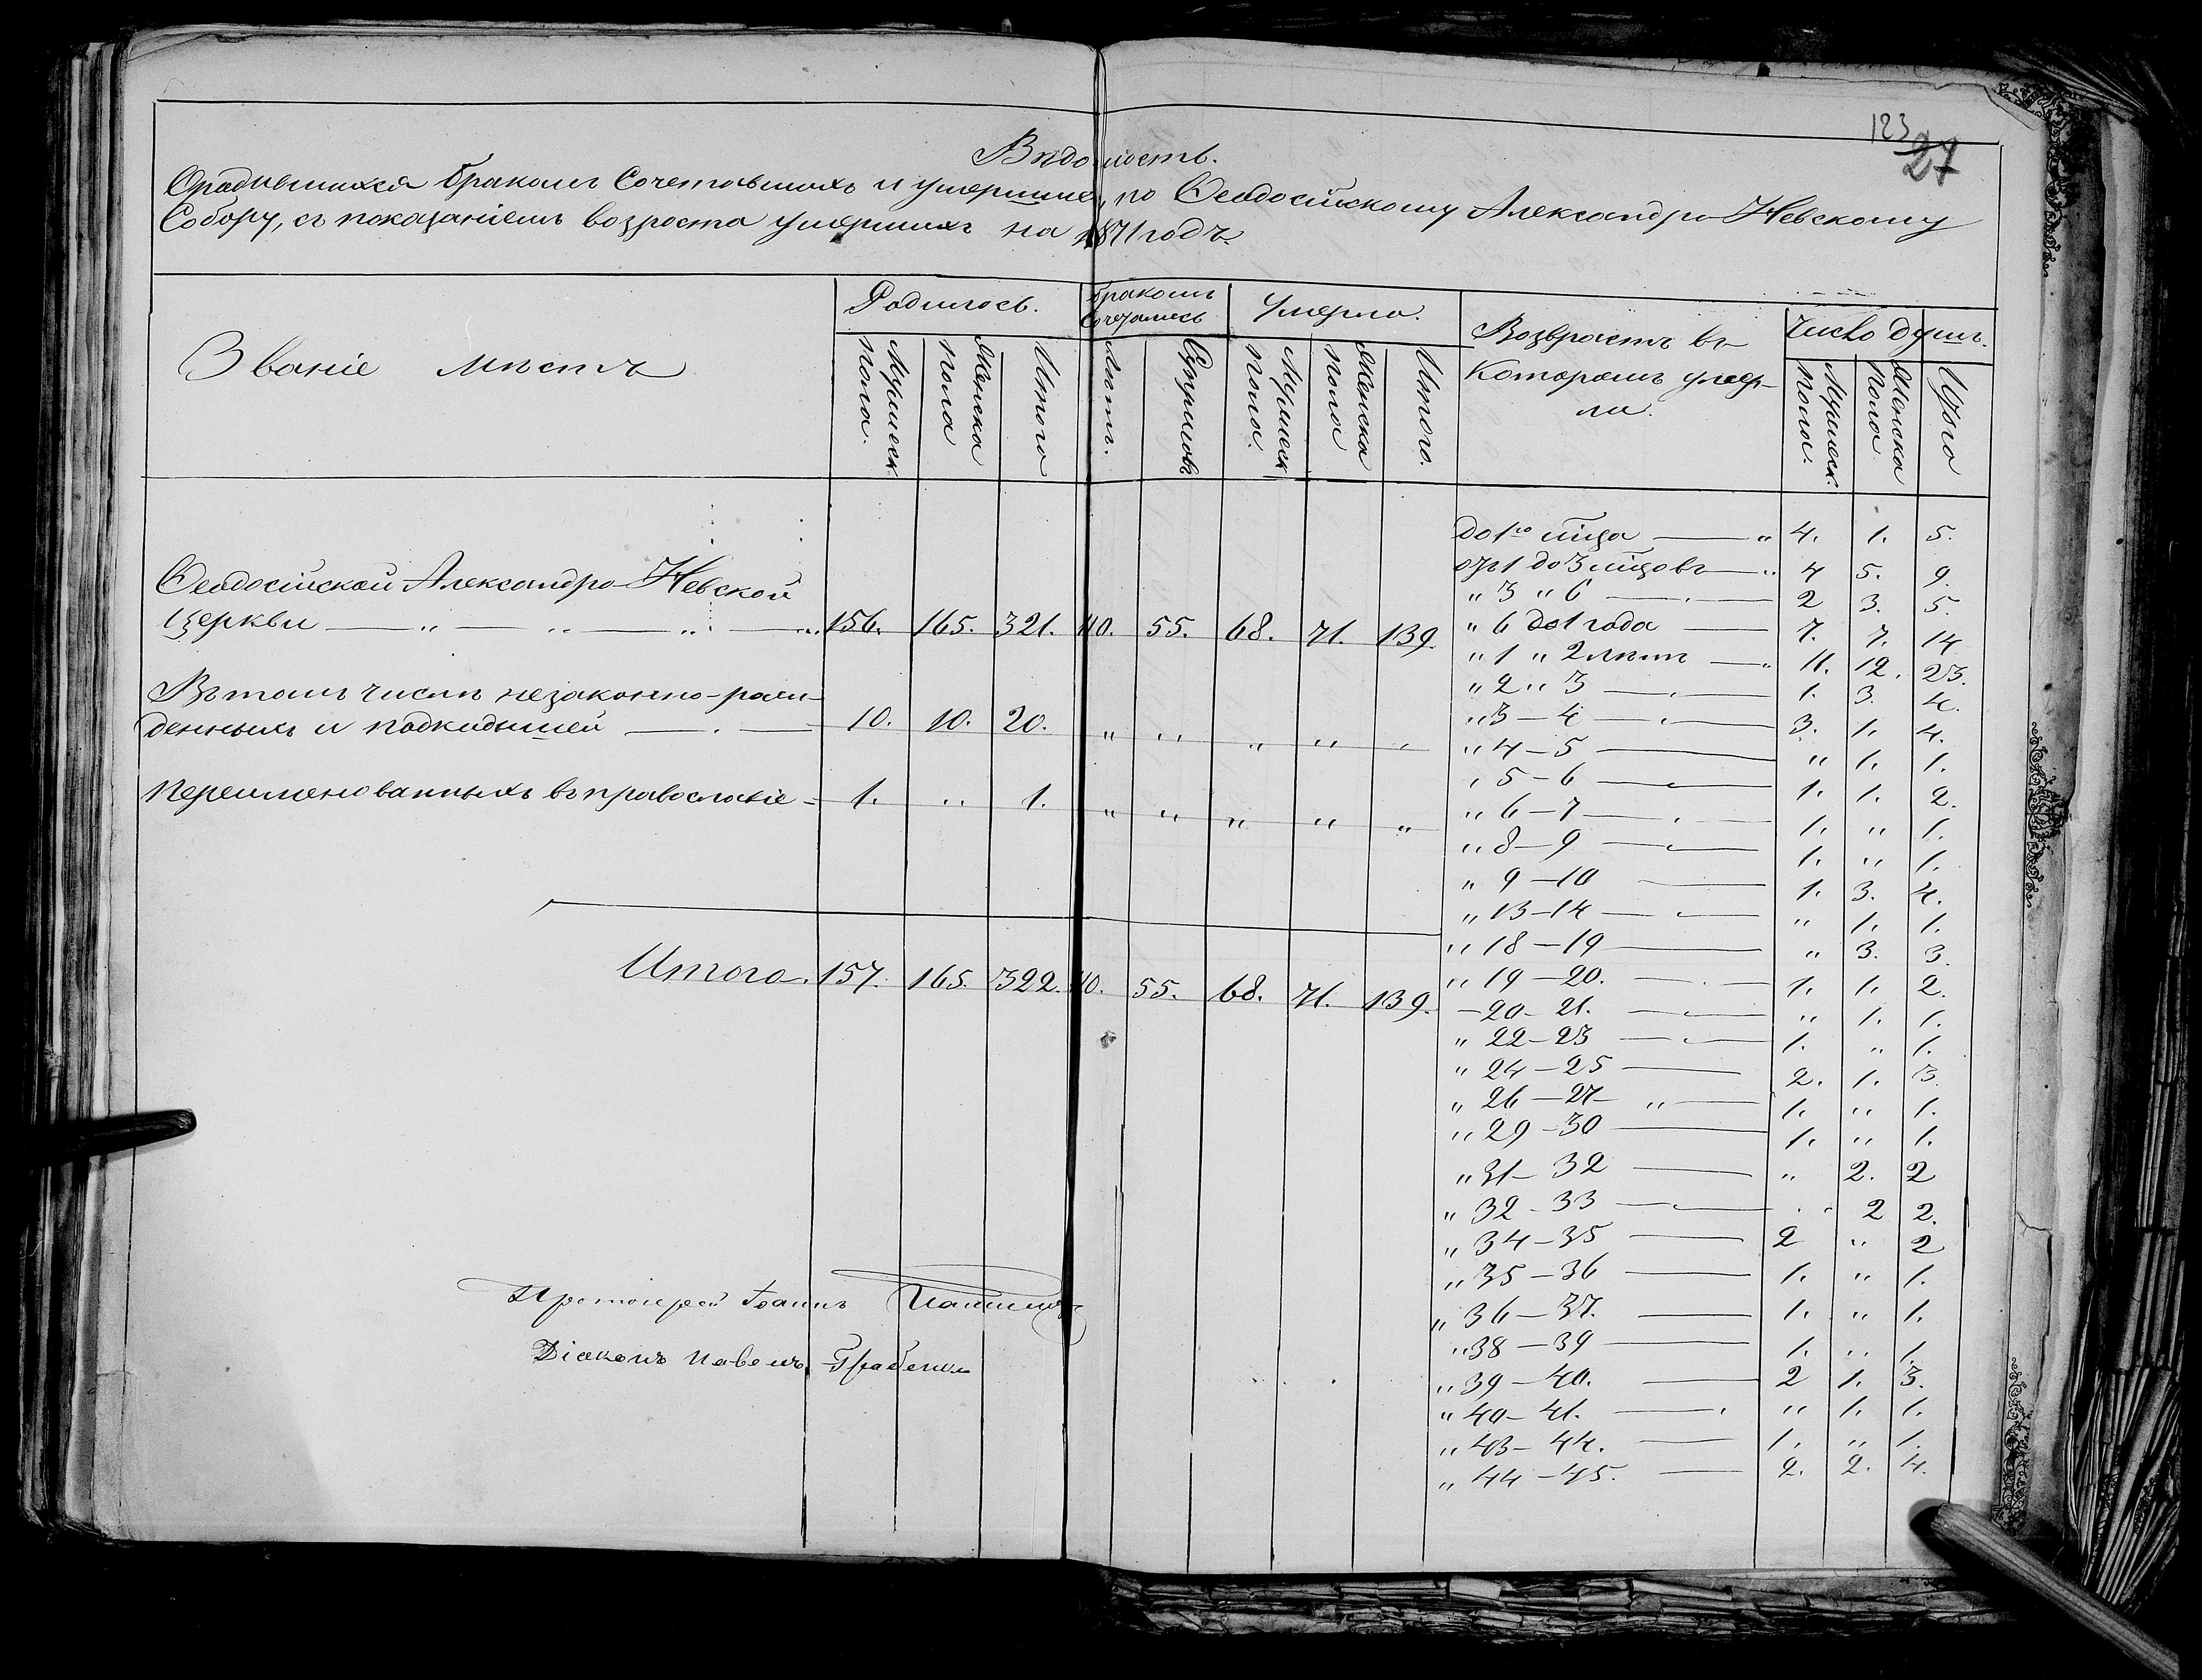 123
27
Вѣдомость.
О родившихся бракомъ сочетавшихъ и умершихъ, по Ѳеодосійскому Александро-Невскому
Собору, съ показаніемъ возроста умершихъ на 1871 годъ.
Званіе мѣстъ
Родилось.
Бракомъ сочетались
Умерло.
Возврастъ въ
которомъ умер-
ли.
Число душъ.
Мужеск. пола.
Женска пола
Итого
Супруговъ
Мужеск. пола.
Женска пола
Итого.
Мужеск. пола.
Женска пола
Итого
Ѳеодосійской Александро-Невской
Церкви — „ — „ — „ — „ 156. 165. 321. 55. 68. 71. 139.
Въ томъ числѣ незаконно-рож-
денныхъ и подкидышей — 10. 10. 20. „ „ „ „ „
Переименованныхъ въ православіе - 1. „ 1. „ „ „ „ „
Итого. 157. 165. 322. 55. 68. 71. 139.
до 1го мѣца — „ 4. 1. 5.
отъ 1 до 3 мѣцовъ — „ 4 5. 9.
„ 3 „ 6 — 2 3. 5.
„ 6 до 1 года — 7. 7. 14
„ 1 „ 2 лѣтъ — „ 11. 12. 23.
„ 2 „ 3 — 1. 3. 4.
„ 3 — 4 — 3. 1. 4.
„ 4 — 5 — „ 1. 1.
„ 5 — 6 — 1. 1. 2.
„ 6 — 7 — 1. „ 1.
„ 8 — 9 — 1. „ 1.
„ 9 — 10 — 1. 3. 4.
„ 13 — 14 — „ 1. 1.
„ 18 — 19 — „ 3. 3.
„ 19 — 20. — 1. 1. 2.
— 20 - 21. — „ 1. 1.
„ 22 — 23 — 1. „ 1.
„ 24 — 25 — 2. 1. 3.
„ 26 — 27 „ — 1. „ 1.
„ 29 — 30 — 1. „ 1.
„ 31 — 32 — „ 2. 2
„ 32 - 33 — „ 2 2.
„ 34 — 35 — 2 „ 2
„ 35 — 36 — 1. „ 1.
„ 36 — 37. — 1. „ 1.
„ 38 — 39 — 1. „ 1.
„ 39 — 40. — 2 1. 3.
„ 40 — 41. — „ 1. 1.
„ 43 — 44. — 1. „ 1.
„ 44 — 45. — 2. 2. 4.
Протоіерей Іоаннъ
Діаконъ Павелъ